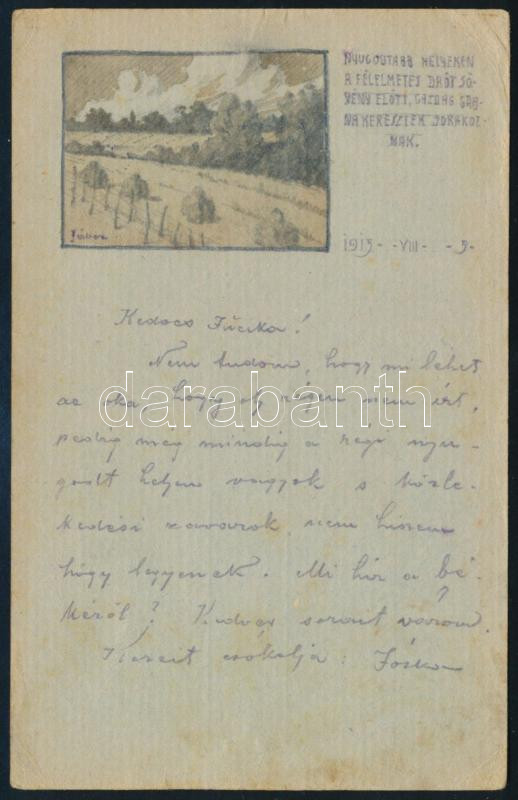 NYUGODTABB HELYEKEN
A FÉLELMETES DRÓT SÖ-
VÉNY ELŐTT, GAZDAG GAB-
NA KERESZTEK SORAKOZ-
NAK.
1915- -VIII- -5-
Kedves Jucika!
Nem tudom, hogy mi lehet
az oka, hogy oly régen nem írt,
pedig még mindig a régi nyu-
godt helyen vagyok s közle-
kedési zavarok nem hiszem
hogy legyenek. Mi hír a bé-
kéről? Kedves sorait várom.
Kezeit csókolja: Jóska
darabanth.com